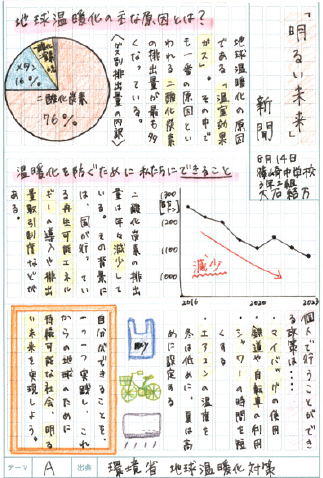 「明るい未来」
新聞
8月14日
篠崎中学校
3年2組
地球温暖化の主な原因とは?
二酸化炭素
76%
メタン
16%
〈ガス別排出量の内訳〉
地球温暖化の原因
である「温室効果
ガス」。その中で
も一番の原因とい
われる二酸化炭素
の排出量が最も多
くなっている。
温暖化を防ぐために私たちにできること
二酸化炭素の排出
量は年々減少して
いる。その背景に
は、国が行ってい
る再生可能エネル
ギーの導入や排出
量取引制度などが
ある。
1300
1200
1100
1000
減少
2016
2020
2023
個人で行うことができ
る政策は…
・マイバッグの使用
・鉄道や自転車の利用
・シャワーの時間を短
くする
・エアコンの温度を
冬は低めに、夏は高
めに設定する
自分ができることを、
一つ一つ実践し、これ
からの地球のために
持続可能な社会、明る
い未来を実現しよう。
テーマ A 出典 環境省 地球温暖化対策